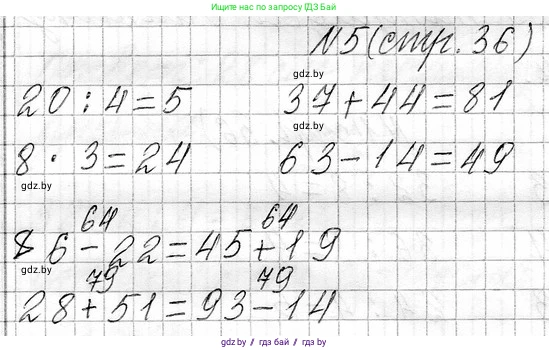 Пишите нас по запросу ГДЗ Бай
N5 (стр. 36)
gdz.by
20 : 4 = 5 37 + 44 = 81
gdz.by
8 · 3 = 24 63 - 14 = 49
gdz.by
64 64
86 - 22 = 45 + 19
gdz.by
79 79
28 + 51 = 93 - 14
gdz.by / гдз бай / gdz.by